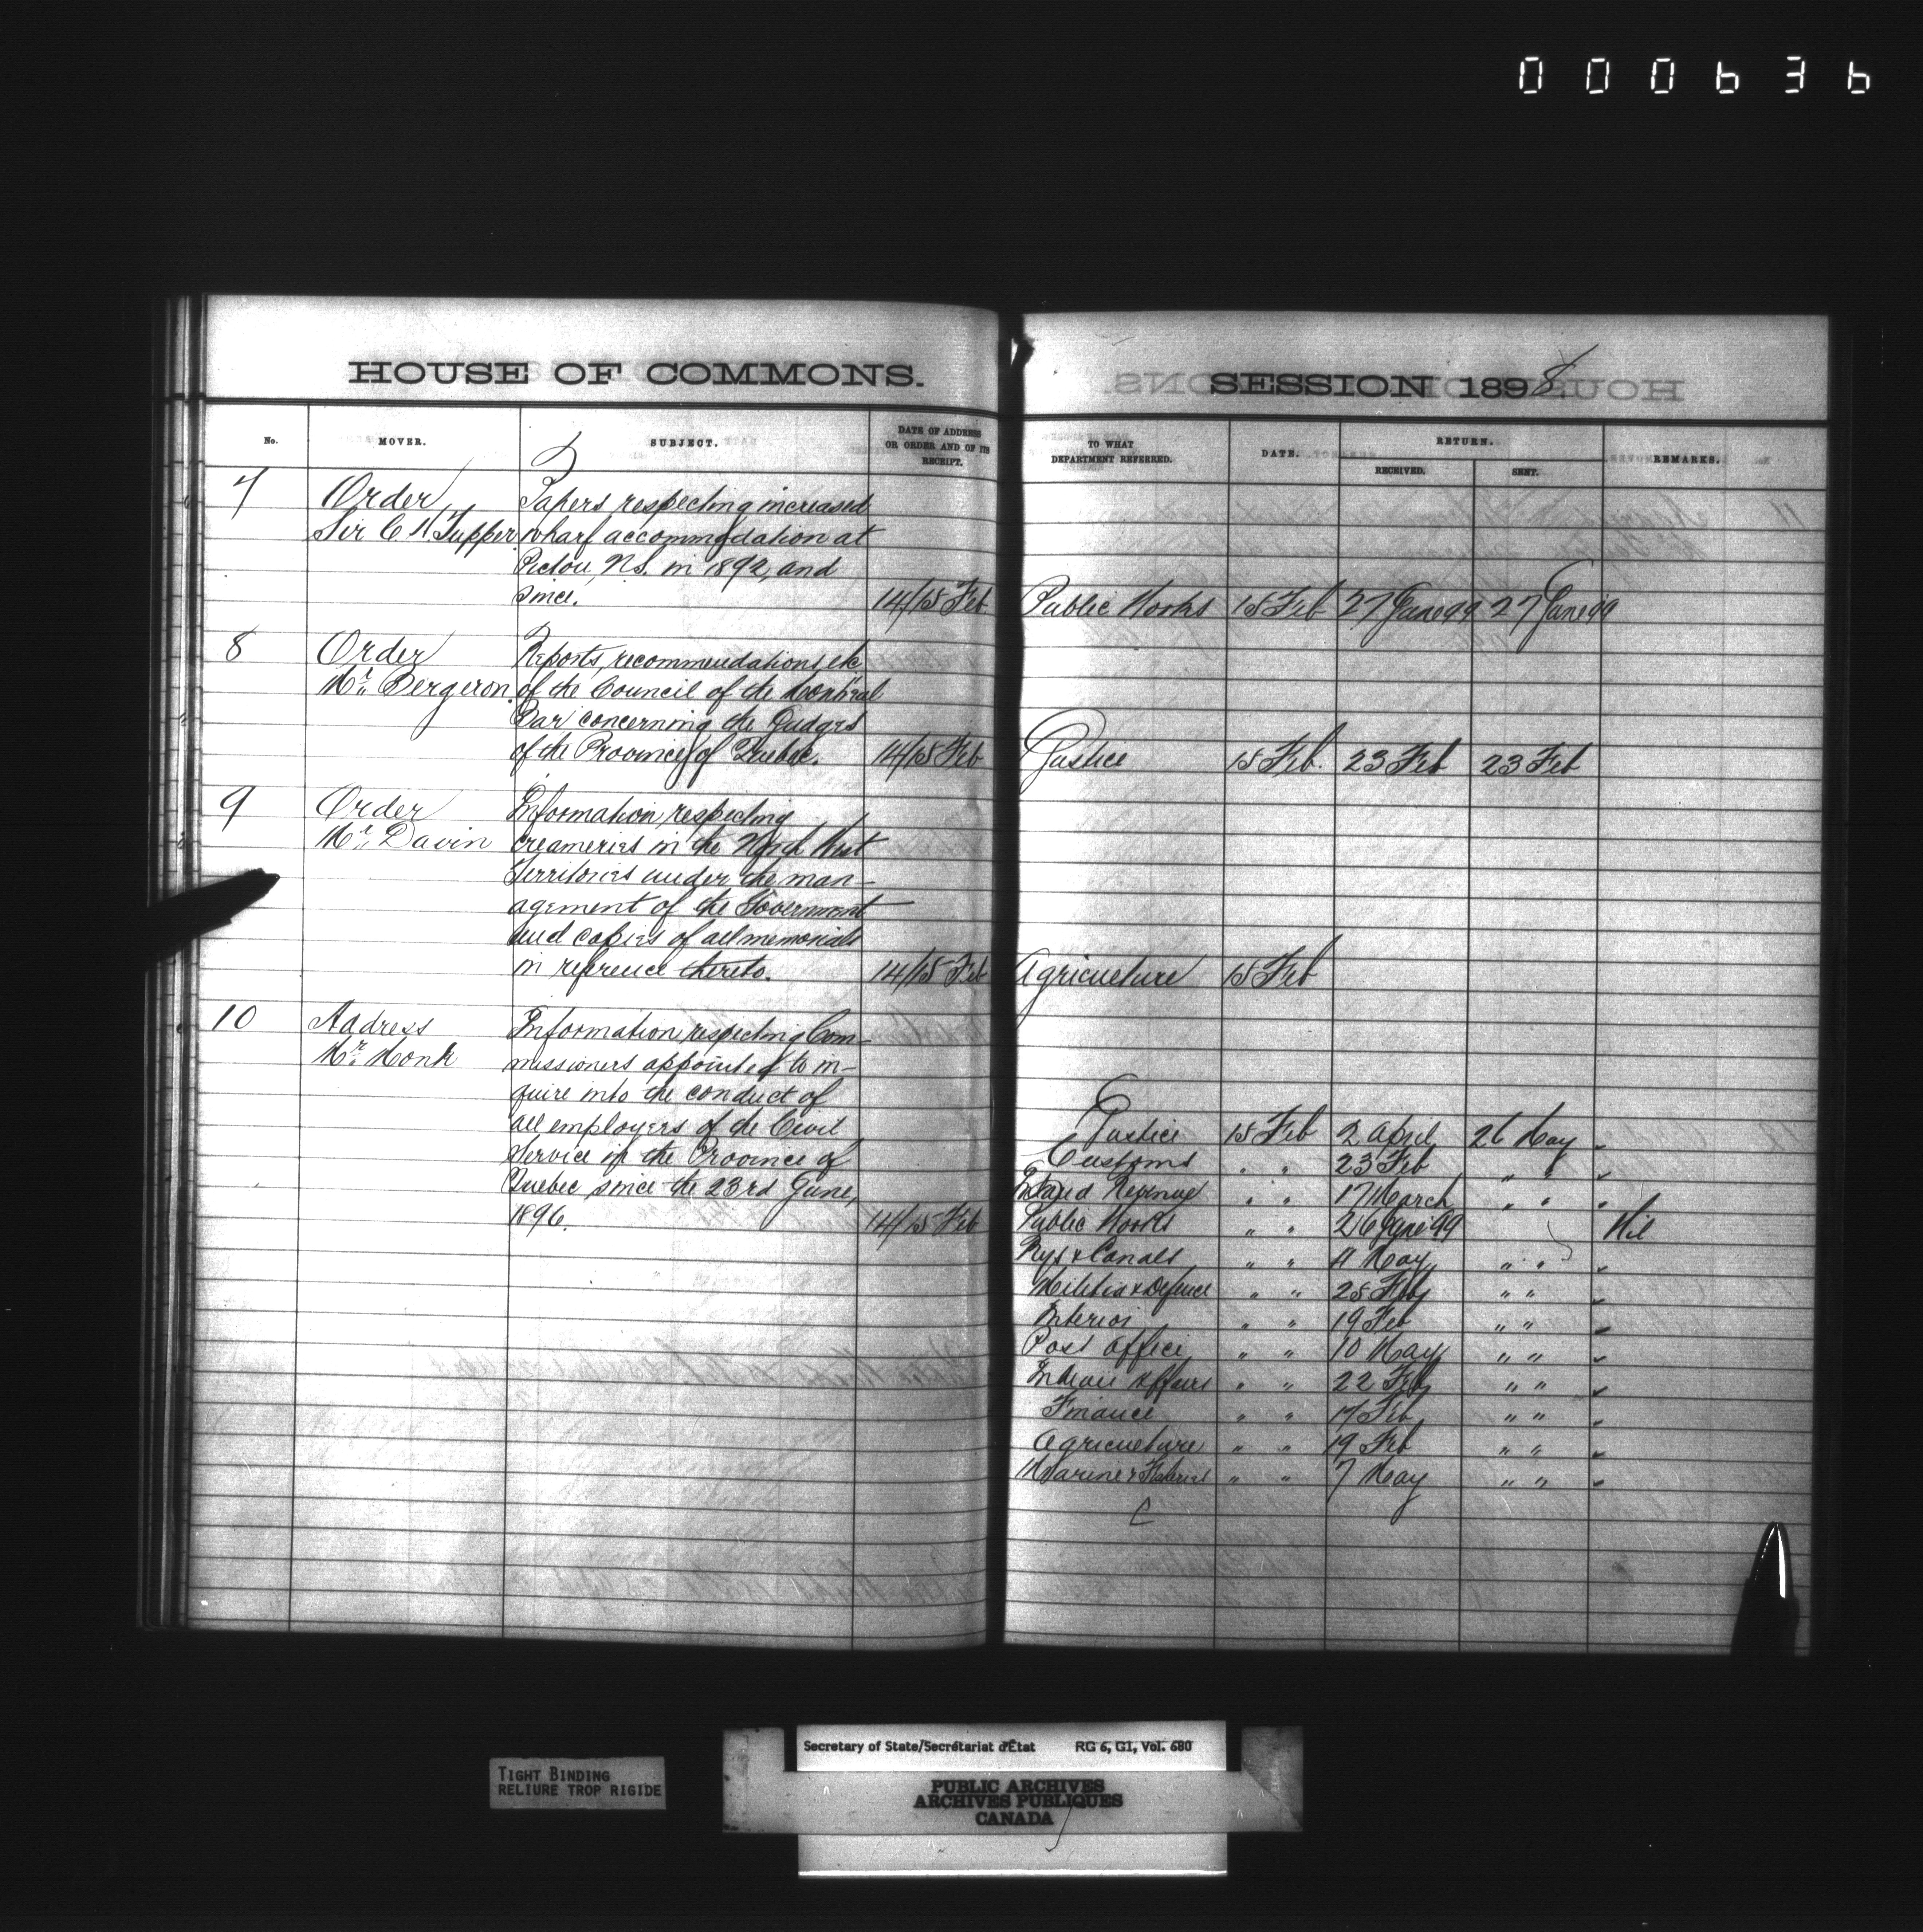 000636
HOUSE OF COMMONS.
No. MOVER. SUBJECT. DATE OF ADDRESS OR ORDER AND OF ITS RECEIPT.
7 Order Papers respecting increased
Sir C. H. Tupper wharf accommodation at
Pictou, N.S. in 1892, and
since. 14/15 Feb.
8 Order Reports, recommendations, etc
Mr. Bergeron of the Council of the Montreal
Bar concerning the Judges
of the Province of Quebec. 14/15 Feb
9 Order Information respecting
Mr. Davin creameries in the North West
Territories under the man-
agement of the Government
and copies of all memorials
in reference thereto. 14/15 Feb
10 Address Information respecting Com-
Mr. Monk missioners appointed to in-
quire into the conduct of
all employers of the Civil
Service in the Province of
Quebec since the 23rd June,
1896. 14/15 Feb
SESSION 1898
TO WHAT DEPARTMENT REFERRED. DATE. RETURN. RECEIVED. SENT. REMARKS.
Public Works 15 Feb 27 June 99 27 June 99
Justice 15 Feb. 23 Feb 23 Feb
Agriculture 15 Feb
Justice 15 Feb 2 April 26 May
Customs " " 23 Feb " "
Inland Revenue " " 17 March " "
Public Works " " 26 June 99 Nil
Rys & Canals " " 4 May " "
Militia & Defence " " 25 Feb " "
Interior " " 19 Feb " "
Post Office " " 10 May " "
Indian Affairs " " 22 Feb " "
Finance " " 17 Feb " "
Agriculture " " 19 Feb " "
Marine & Fisheries " " 7 May " "
TIGHT BINDING
RELIURE TROP RIGIDE
Secretary of State/Secrétariat d'État RG 6, G1, Vol. 680
PUBLIC ARCHIVES
ARCHIVES PUBLIQUES
CANADA